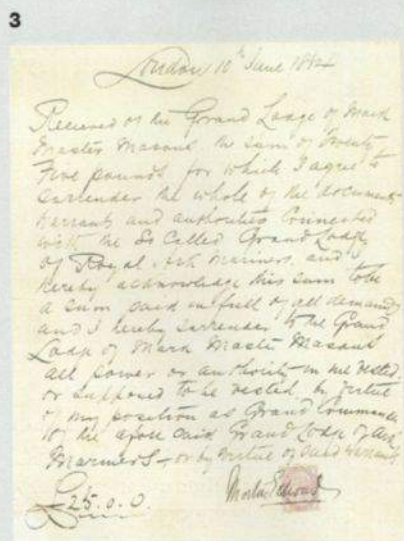 3
London 10th June 1884
Received of the Grand Lodge of Mark
Master Masons the sum of Twenty
Five pounds for which I agree to
surrender the whole of the documents
warrants and authorities connected
with the So Called Grand Lodge
of Royal Ark Mariners, and I
hereby acknowledge this sum to be
a sum paid in full of all demands
and I hereby surrender to the Grand
Lodge of Mark Master Masons
all power or authority in me vested
or supposed to be vested by virtue
of my position as Grand Commander
of the afore said Grand Lodge of Ark
Mariners – or by virtue of said warrants
£25.0.0. Morton Edwards